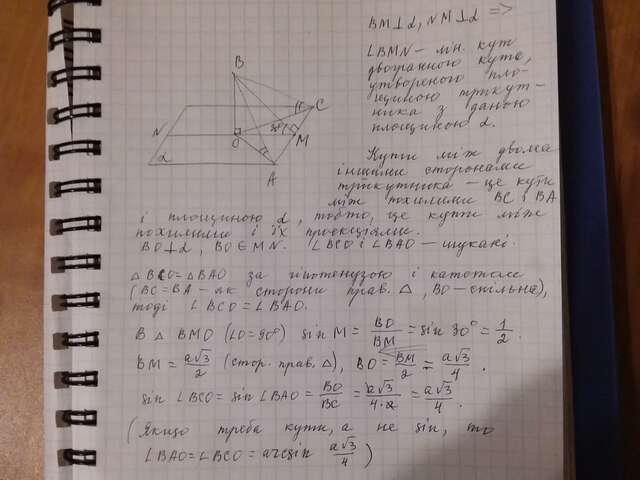 BM⊥α, NM⊥α =>
∠BMN – лін. кут
двогранного кута,
утвореного пло-
щиною трикут-
ника з даною
площиною α.
B
C
N
O
30°
M
α
A
Кути між двома
іншими сторонами
трикутника – це кути
між похилими BC і BA
і площиною α, тобто, це кути між
похилими і їх проекціями.
BO⊥α, BO∈MN. ∠BCO і ∠BAO – шукані.
△BCO=△BAO за гіпотенузою і катетом
(BC=BA – як сторони прав. △, BO – спільна),
тоді ∠BCO=∠BAO.
В △BMO (∠O=90°) sin M = BO/BM = sin 30° = 1/2.
BM = a√3/2 (стор. прав. △), BO = BM/2 = a√3/4.
sin ∠BCO = sin ∠BAO = BO/BC = a√3/4·a = a√3/4.
(Якщо треба кути, а не sin, то
∠BAO=∠BCO= arcsin a√3/4)